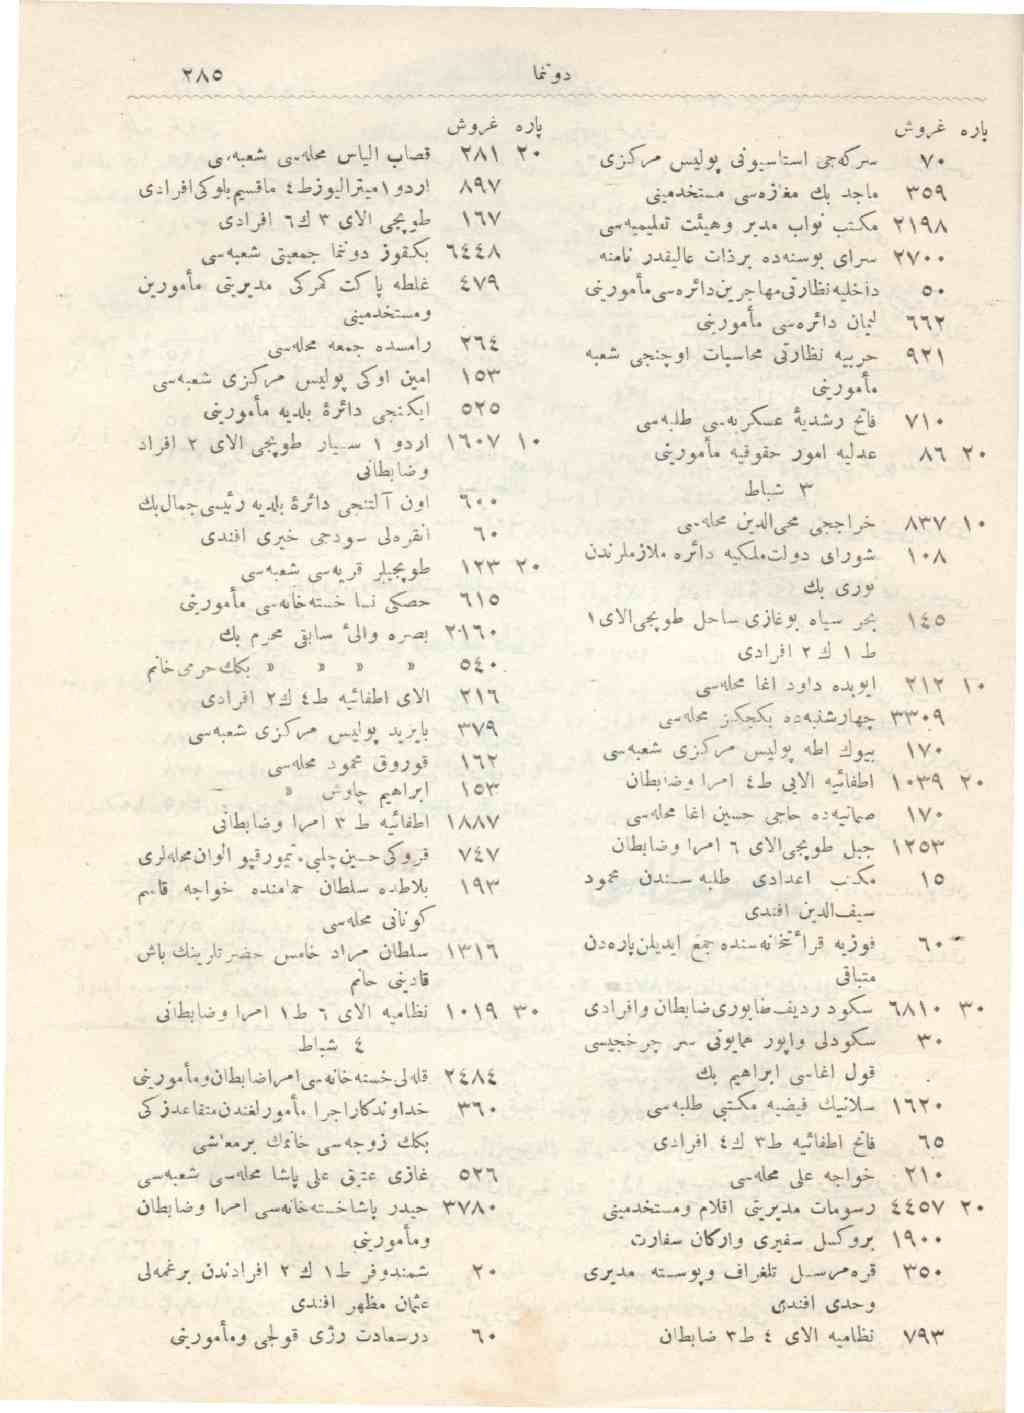 دوننما ٢٨٥
پاره غروش
٧٠ سركه‌جی استاسیونی پولیس مركزی
٣٥٩ ماجد بك مغازه‌سی مستخدمینی
٢١٩٨ مكتب نواب مدیر وهیئت تعلیمیه‌سی
٢٧٠٠ سرای بوسنه‌ده برذات عالیقدر نامنه
٥٠ داخلیه نظارتی مهاجرین دائره‌سی مأمورینی
٦٦٢ لیمان دائره‌سی مأمورینی
٩٢١ حربیه نظارتی محاسبات اوچنجی شعبه
مأمورینی
٧١٠ فاتح رشدیهٔ عسكریه‌سی طلبه‌سی
٢٠ ٨٦ عدلیه امور حقوقیه مأمورینی
٣ شباط
١٠ ٨٣٧ خراججی محی‌الدین محله‌سی
١٠٨ شورای دولت ملكیه دائره ملازملرندن
نوری بك
١٤٥ بحر سیاه بوغازی ساحل طوپجی الای ١
ط ١ ك ٢ افرادی
١٠ ٢١٢ ایوبده داود اغا محله‌سی
٣٣٠٩ چهارشنبه‌ده بكجكز محله‌سی
١٧٠ بیوك اطه پولیس مركزی شعبه‌سی
٢٠ ١٠٣٩ اطفائیه الایی ط ٤ امرا وضابطان
١٧٠ صمانیه‌ده حاجی حسین اغا محله‌سی
١٢٥٣ جبل طوپجی الای ٦ امرا وضابطان
١٥ مكتب اعدادی طلبه‌سندن محمود
سیف‌الدین افندی
٦٠ فوزیه قرائتخانه‌سنده جمع ایدیلن پاره‌دن
متباقی
٣٠ ٦٨١٠ سكود ردیف طابوری ضابطان وافرادی
٣٠ سكودلی واپور همایونی سر چرخجیسی
قول اغاسی ابراهیم بك
١٦٢٠ سلانیك فیضیه مكتبی طلبه‌سی
٦٥ فاتح اطفائیه ط ٣ ك ٤ افرادی
٢١٠ خواجه علی محله‌سی
٢٠ ٤٤٥٧ رسومات مدیریتی اقلام ومستخدمینی
١٩٠٠ بروكسل سفیری واركان سفارت
٣٥٠ قره‌مرسل تلغراف وپوسته مدیری
وحدی افندی
٧٩٣ نظامیه الای ٤ ط ٣ ضابطان
پاره غروش
٢٠ ٢٨١ قصاب الیاس محله‌سی شعبه‌سی
٨٩٧ اردو ١ میترالیوز ط ٤ ماقسیم بلوكی افرادی
١٦٧ طوپجی الای ٣ ك ٦ افرادی
٦٤٤٨ بكقوز دوننما جمعیتی شعبه‌سی
٤٧٩ غلطه پاكت كمركی مدیریتی مأمورین
ومستخدمینی
٢٦٤ رامسده جمعه محله‌سی
١٥٣ امین اوكی پولیس مركزی شعبه‌سی
٥٢٥ ایكنجی دائرهٔ بلدیه مأمورینی
١٠ ١٦٠٧ اردو ١ سیار طوپجی الای ٢ افراد
وضابطانی
٦٠٠ اون آلتنجی دائرهٔ بلدیه رئیسی جمال بك
٦٠ انقره‌لی سودجی خیری افندی
٢٠ ١٢٣ طوپجیلر قریه‌سی شعبه‌سی
٦١٥ حصكی نسا خسته‌خانه‌سی مأمورینی
٢١٦٠ بصره والیٔ سابقی محرم بك
٥٤٠ » » » » بكك حرمی خانم
٢١٦ الای اطفائیه ط ٤ ك ٢ افرادی
٣٧٩ بایزید پولیس مركزی شعبه‌سی
١٦٢ قوروق محمود محله‌سی
١٥٣ ابراهیم چاوش »
١٨٨٧ اطفائیه ط ٣ امرا وضابطانی
٧٤٧ فروكی حسین چلبی. تیمورقپو الوان محله‌لری
١٩٣ بلاطده سلطان حمامنده خواجه قاسم
كونانی محله‌سی
١٣١٦ سلطان مراد خامس حضرتلرینك باش
قادینی خانم
٣٠ ١٠١٩ نظامیه الای ٦ ط ١ امرا وضابطانی
٤ شباط
٢٤٨٤ قله‌لی خسته‌خانه‌سی امرا ضابطان ومأمورینی
٣٦٠ خداوندكار اجرا مأمورلغندن متقاعد زكی
بكك زوجه‌سی خانمك بر معاشی
٥٢٦ غازی عتیق علی پاشا محله‌سی شعبه‌سی
٣٧٨٠ حیدر پاشا خسته‌خانه‌سی امرا وضابطان
ومأمورینی
٢٠ شمندوفر ط ١ ك ٢ افرادندن برغمه‌لی
عثمان مظهر افندی
٦٠ درسعادت رژی قولجی ومأمورینی